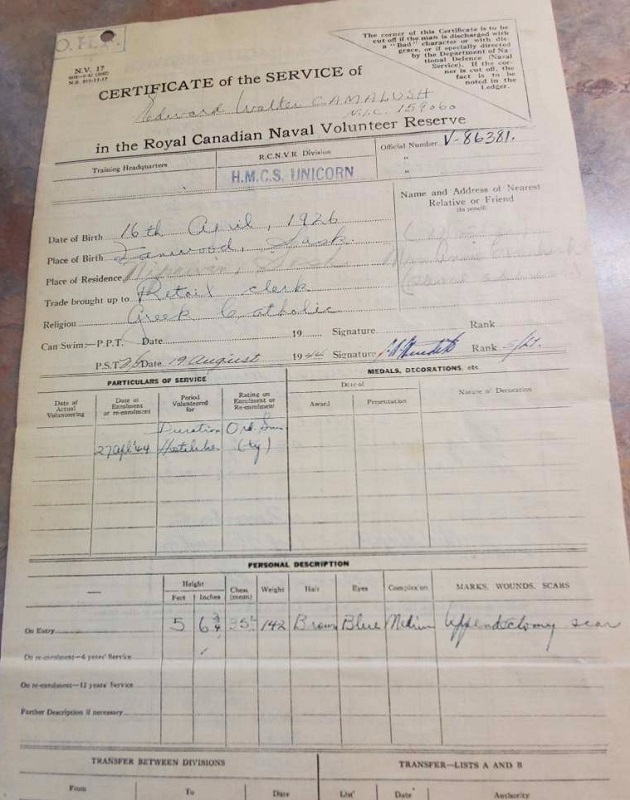 O.H.F.
N.V. 17
The corner of this Certificate is to be
cut off if the man is discharged with
a "Bad" character or with dis-
grace, or if specially directed
by the Department of Na-
tional Defence (Naval
Service). If the cor-
ner is cut off, the
fact is to be
noted in the
Ledger.
CERTIFICATE of the SERVICE of
Edward Walter CAMALUSH
N.I.C. 159060
in the Royal Canadian Naval Volunteer Reserve
Training Headquarters
R.C.N.V.R Division
Official Number V-86381.
H.M.C.S. UNICORN
Name and Address of Nearest
Relative or Friend
(In pencil)
Date of Birth 16th April, 1926
Place of Birth Sask.
Place of Residence Nipawin, Sask
Trade brought up to Retail clerk
Religion Greek Catholic
Can Swim:—P.P.T. Date 19 Signature Rank
P.S.T. Date 19 August 1944 Signature Rank
PARTICULARS OF SERVICE
MEDALS, DECORATIONS, etc.
Date of Actual Volunteering
Date of Enrolment or re-enrolment
Period Volunteered for
Rating on Enrolment or Re-enrolment
Date of
Award
Presentation
Nature of Decoration
Duration Ord. Smn
27 Apl '44 Hostilities (ty)
PERSONAL DESCRIPTION
Height
Feet Inches
Chest (mean)
Weight
Hair
Eyes
Complexion
MARKS, WOUNDS, SCARS
On Entry 5 6 3/4 142 Brown Blue Medium Appendectomy scar
On re-enrolment—6 years' Service
On re-enrolment—12 years' Service
Further Description if necessary
TRANSFER BETWEEN DIVISIONS
TRANSFER—LISTS A AND B
From To Date List Date Authority